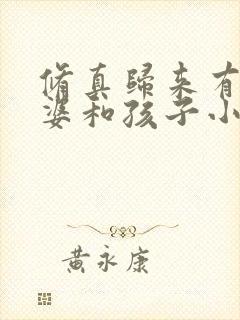 脩真歸來有
婆和孩子小
黃永康